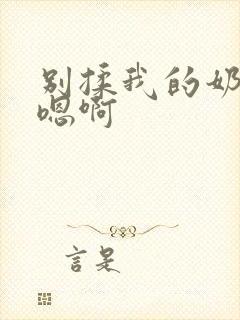 别揉我的奶
嗯啊
言是